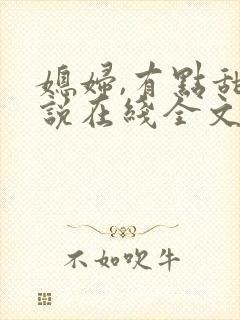 媳婦,有點甜
說在綫全文
不如吹牛